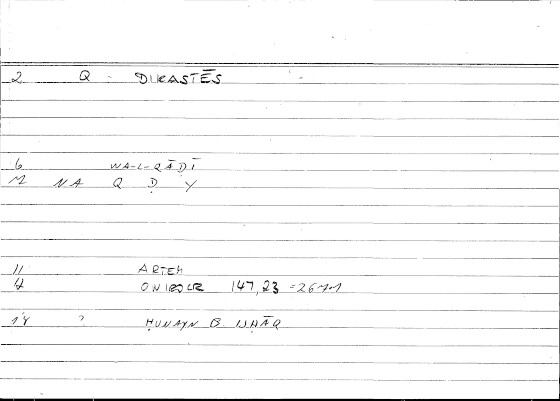 2 Q - DIKASTĒS
6 WA-L-QĀḌĪ
M NA Q Ḍ Y
11 ARTEM
4 ONIROCR 147,23 = 26
14 ? ḤUNAYN B. ISḤĀQ